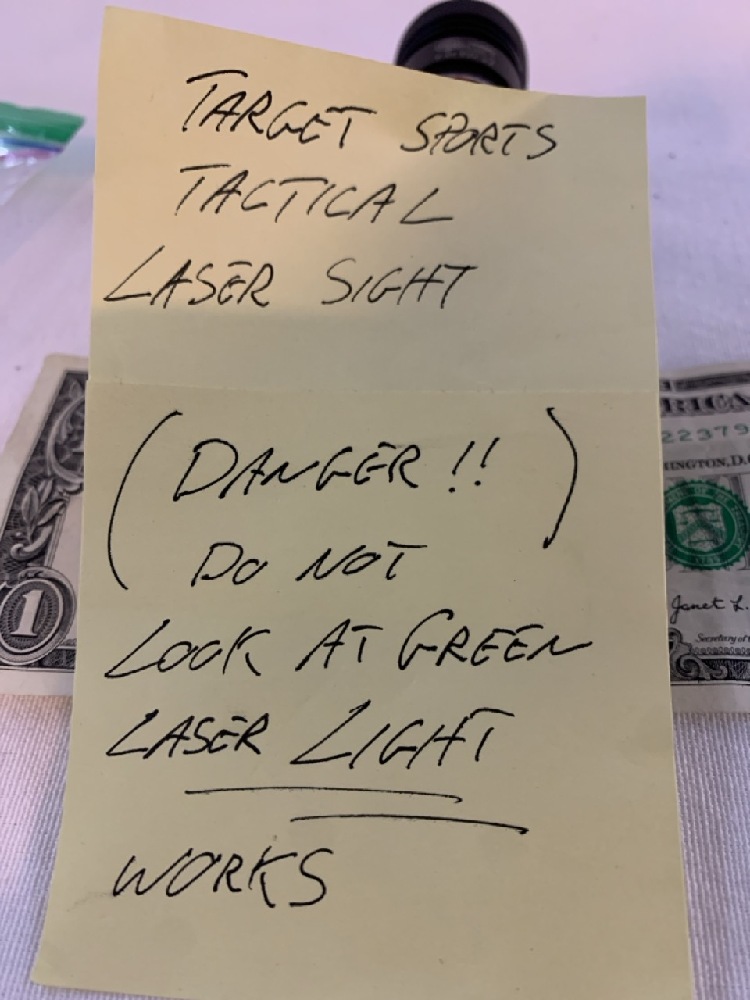 TARGET SPORTS
TACTICAL
LASER SIGHT
(DANGER!!)
DO NOT
LOOK AT GREEN
LASER LIGHT
WORKS
1
RICA
22379
HINGTON, D.C
Janet L.
Secretary of